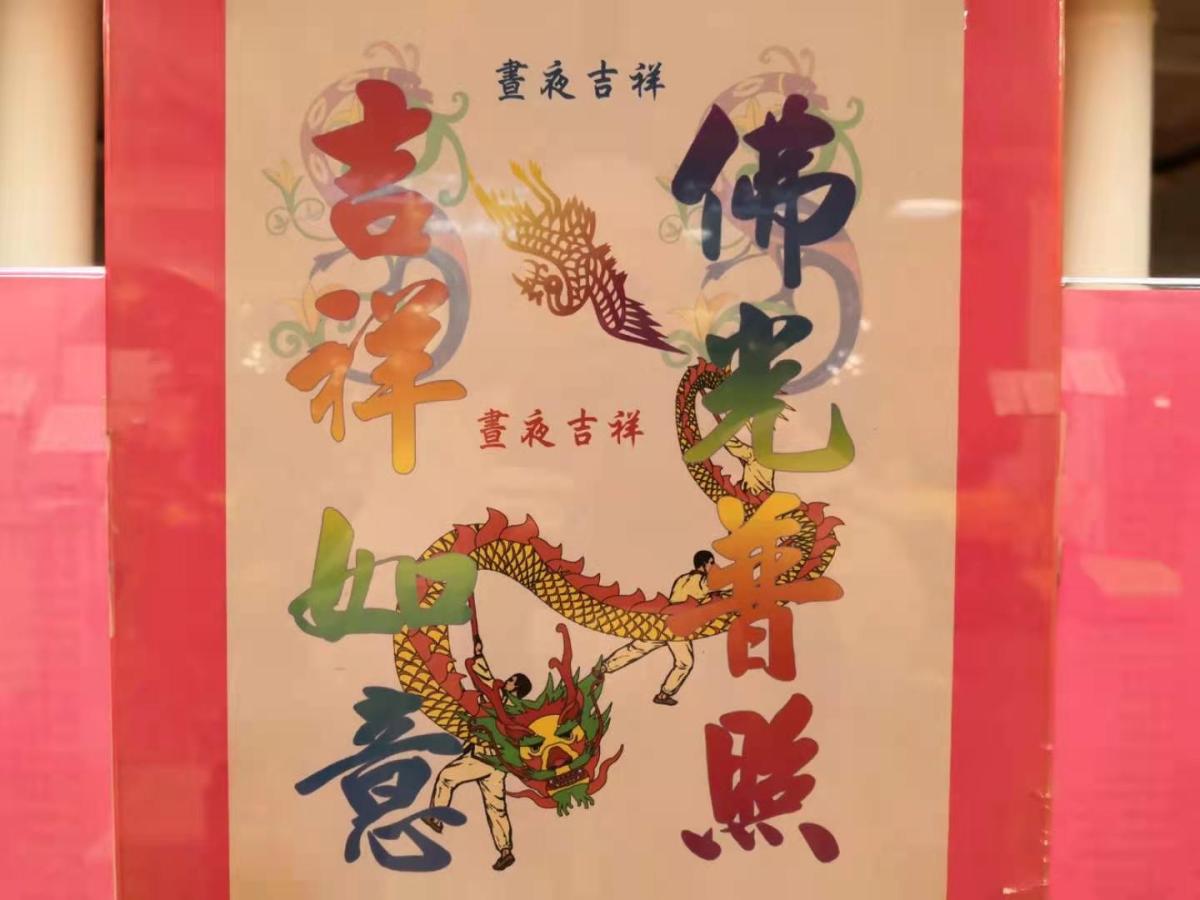 晝夜吉祥
佛光普照
吉祥如意
晝夜吉祥